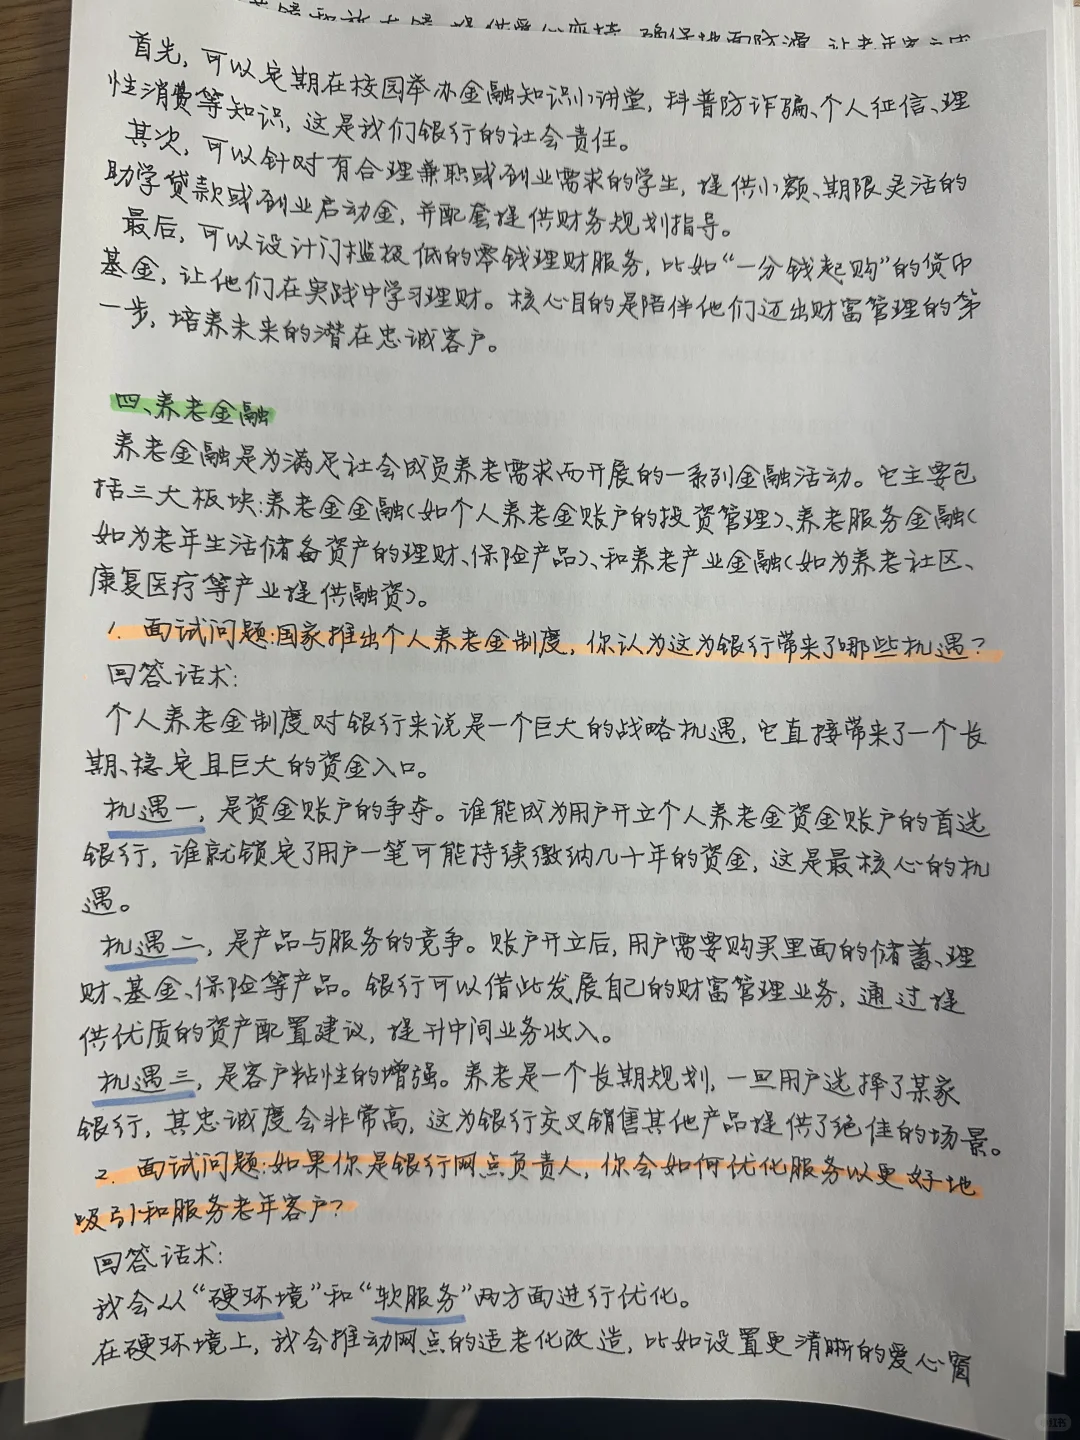 提供爱心座椅、确保地面防滑,让老年客户感
首先,可以定期在校园举办金融知识小讲堂,科普防诈骗、个人征信、理
性消费等知识,这是我们银行的社会责任。
其次,可以针对有合理兼职或创业需求的学生,提供小额、期限灵活的
助学贷款或创业启动金,并配套提供财务规划指导。
最后,可以设计门槛极低的零钱理财服务,比如“一分钱起购”的货币
基金,让他们在实践中学习理财。核心目的是陪伴他们迈出财富管理的第
一步,培养未来的潜在忠诚客户。
四、养老金融
养老金融是为满足社会成员养老需求而开展的一系列金融活动。它主要包
括三大板块:养老金金融(如个人养老金账户的投资管理)、养老服务金融(
如为老年生活储备资产的理财、保险产品)、和养老产业金融(如为养老社区、
康复医疗等产业提供融资)。
1. 面试问题:国家推出个人养老金制度,你认为这为银行带来了哪些机遇?
回答话术:
个人养老金制度对银行来说是一个巨大的战略机遇,它直接带来了一个长
期、稳定且巨大的资金入口。
机遇一,是资金账户的争夺。谁能成为用户开立个人养老金资金账户的首选
银行,谁就锁定了用户一笔可能持续缴纳几十年的资金,这是最核心的机
遇。
机遇二,是产品与服务的竞争。账户开立后,用户需要购买里面的储蓄、理
财、基金、保险等产品。银行可以借此发展自己的财富管理业务,通过提
供优质的资产配置建议,提升中间业务收入。
机遇三,是客户粘性的增强。养老是一个长期规划,一旦用户选择了某家
银行,其忠诚度会非常高,这为银行交叉销售其他产品提供了绝佳的场景。
2. 面试问题:如果你是银行网点负责人,你会如何优化服务以更好地
吸引和服务老年客户?
回答话术:
我会从“硬环境”和“软服务”两方面进行优化。
在硬环境上,我会推动网点的适老化改造,比如设置更清晰的爱心窗